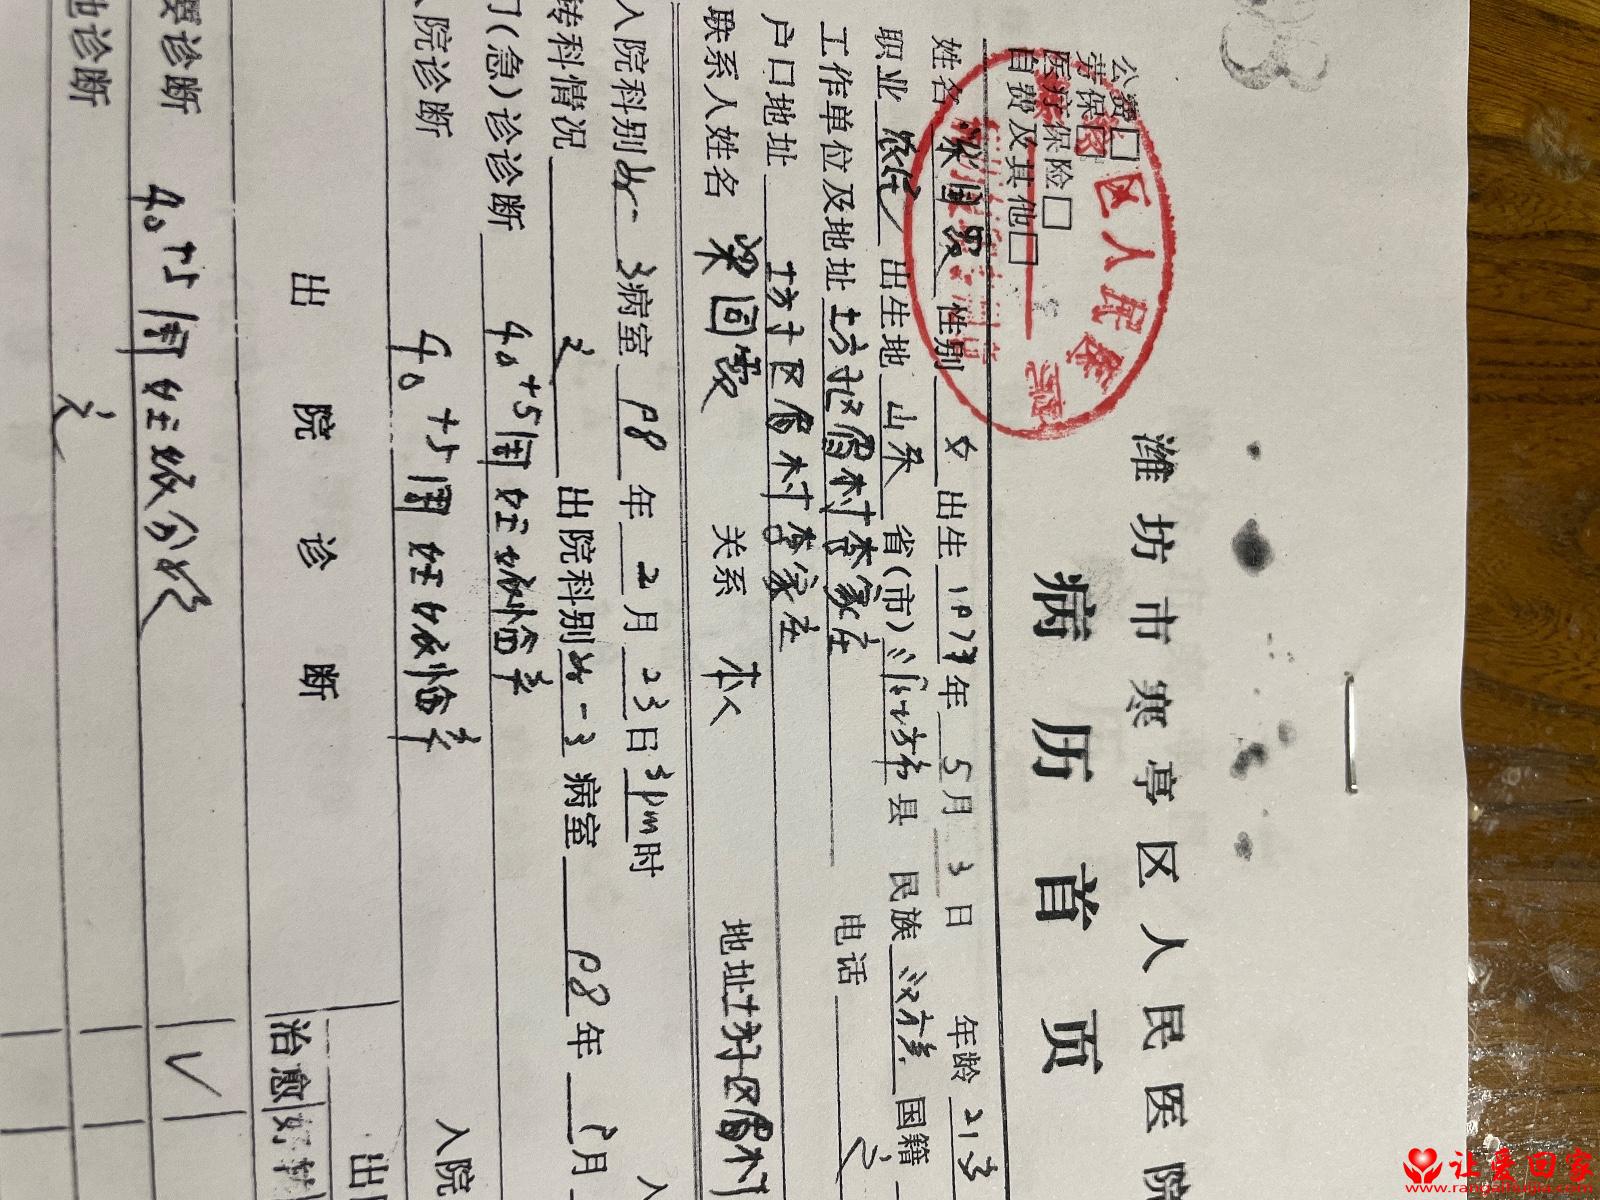 潍坊市寒亭区人民医院
病历首页
公费□
劳保□
医疗保险□
自费及其他□
区人民
姓名 性别 女 出生 年 5月 3日 年龄 21岁
职业 出生地 山东 省(市) 潍坊市 县 民族 汉族 国籍
工作单位及地址 坊子区眉村李家庄 电话
户口地址 坊子区眉村李家庄
联系人姓名 梁国霞 关系 本人 地址 坊子区眉村
入院科别 妇-3病室 98年 2月 23日 3pm时 入
转科情况 出院科别 妇-3病室 98年 月
门(急)诊诊断 40+5周妊娠临产
入院诊断 40+5周妊娠临产 入院
出院诊断 出
治愈 好转
要诊断 40+5周妊娠分娩 √
他诊断 无
让爱回家
www.rangaihuijia.com